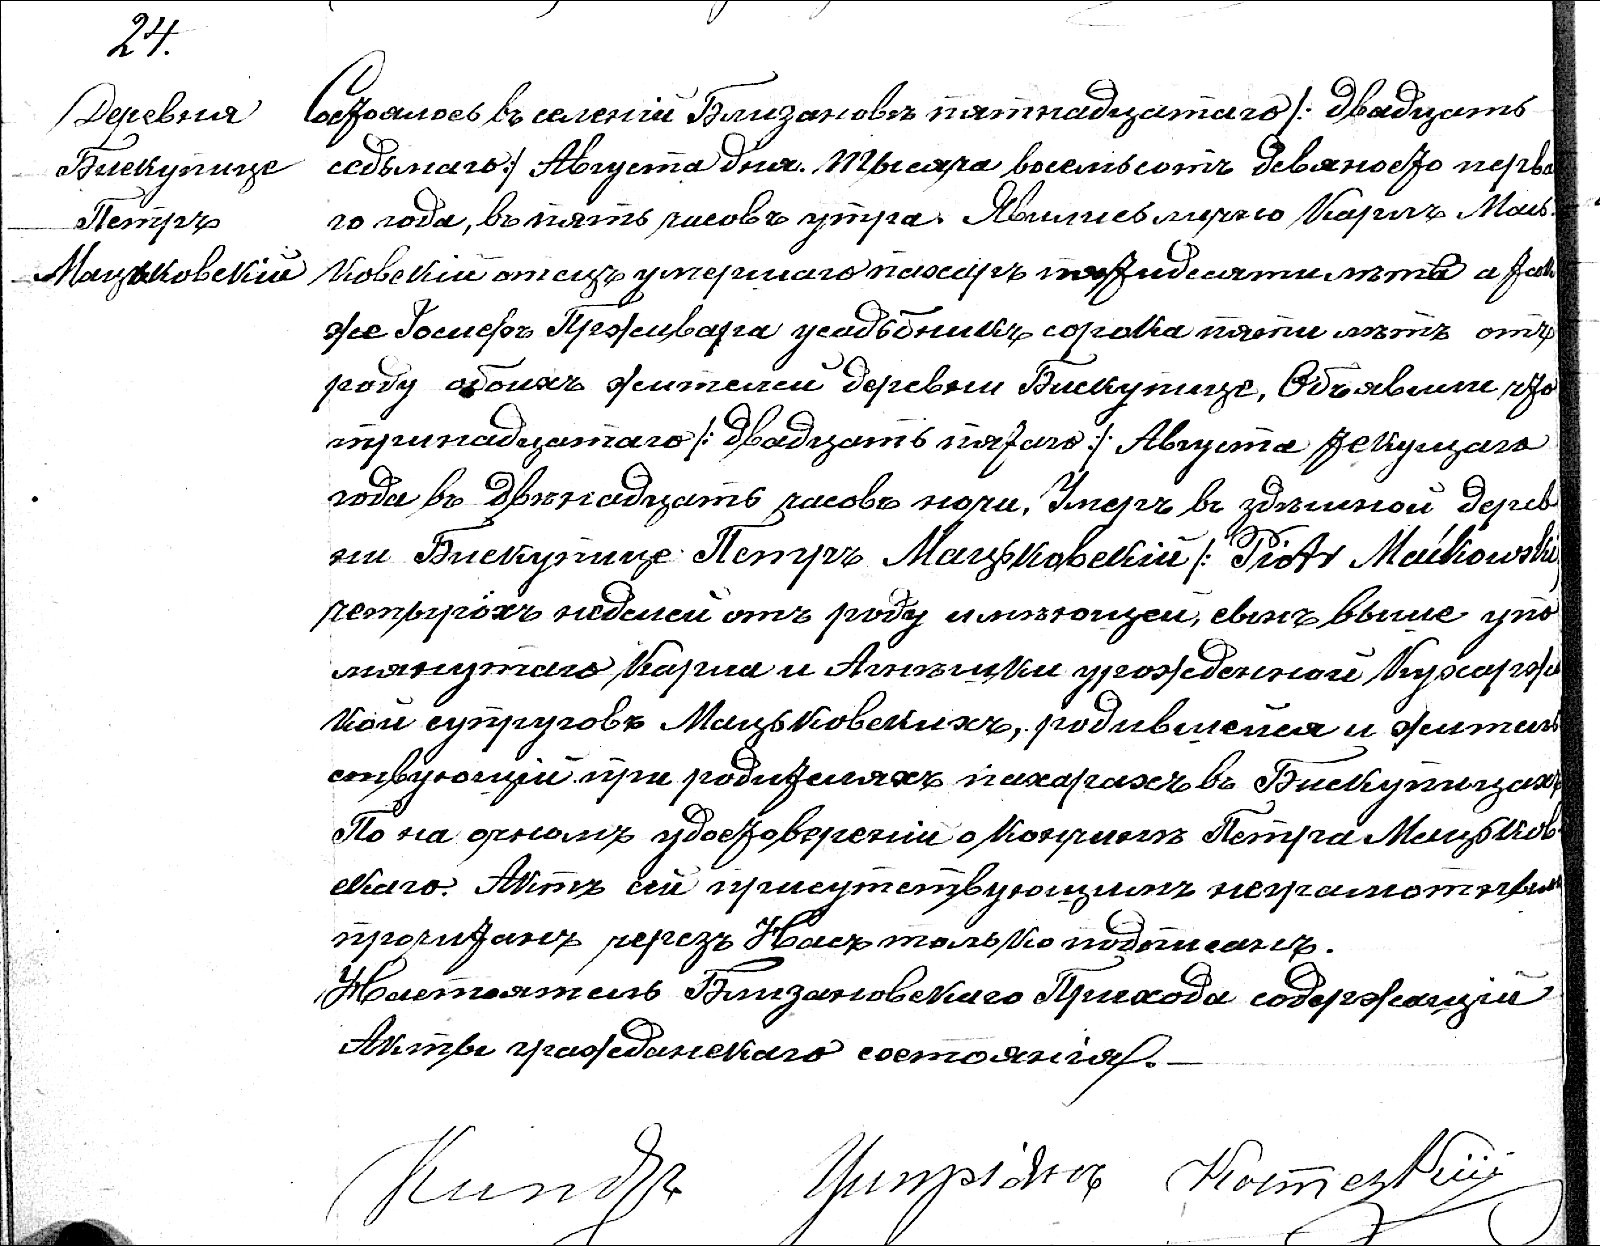 24.
Деревня
Бискупице
Петръ
Мацьковскій
Состоялось въ селеніи Близановѣ пятнадцатаго /: двадцать
седьмаго :/ Августа дня. Тысяча восемьсотъ девяносто перва
го года, въ пять часовъ утра. Явились лично Карлъ Маць
ковскій отецъ умершаго пахарь пятидесяти лѣтъ а так
же Іосифъ усадьбникъ сорока пяти лѣтъ отъ
роду обоихъ жителей деревни Бискупице, Объявили что
тринадцатаго /: двадцать пятаго :/ Августа текущаго
года въ двѣнадцать часовъ ночи, Умеръ въ здѣшной дерев
ни Бискупице Петръ Мацьковскій /: Piotr Maćkowski
четырохъ неделей отъ роду имѣющей, сынъ выше упо
мянутаго Карла и Агнѣшки урожденной
кой супруговъ Мацьковскихъ, родившейся и житель
ствующій при родителяхъ пахаряхъ въ Бискупицахъ
По на очномъ удостовереніи о кончинѣ Петра Мацьков
скаго. Актъ сей присутствующимъ неграмотнымъ
прочитанъ черезъ Насъ только подписанъ.
Настоятель Близановскаго Прихода содержащій
Акты гражданскаго состоянія.
Ксендзъ Ципріанъ